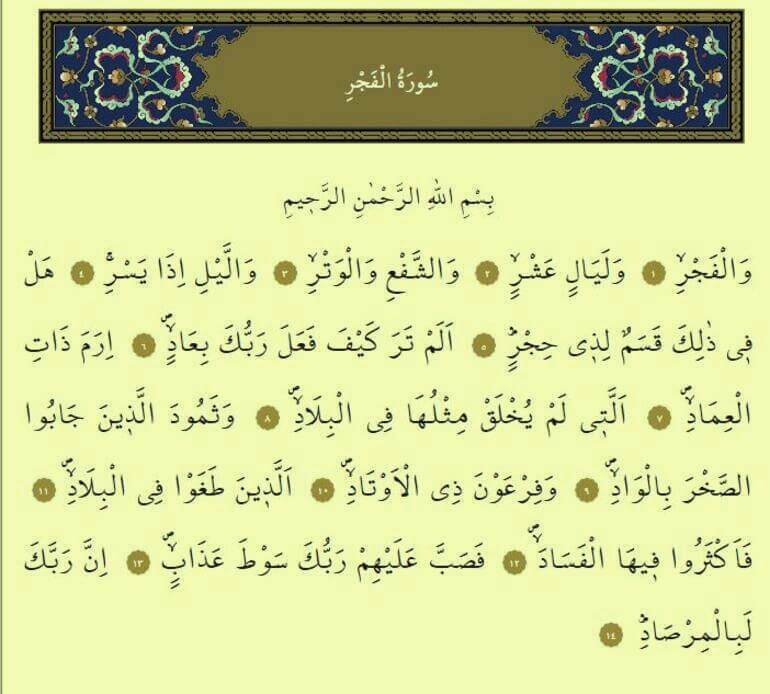 سُورَةُ الْفَجْرِ
بِسْمِ اللهِ الرَّحْمٰنِ الرَّح۪يمِ
وَالْفَجْرِۙ ١ وَلَيَالٍ عَشْرٍۙ ٢ وَالشَّفْعِ وَالْوَتْرِۙ ٣ وَالَّيْلِ اِذَا يَسْرِۚ ٤ هَلْ
ف۪ي ذٰلِكَ قَسَمٌ لِذ۪ي حِجْرٍۜ ٥ اَلَمْ تَرَ كَيْفَ فَعَلَ رَبُّكَ بِعَادٍۖۙ ٦ اِرَمَ ذَاتِ
الْعِمَادِۖۙ ٧ اَلَّت۪ي لَمْ يُخْلَقْ مِثْلُهَا فِي الْبِلَادِۖۙ ٨ وَثَمُودَ الَّذ۪ينَ جَابُوا
الصَّخْرَ بِالْوَادِۖۙ ٩ وَفِرْعَوْنَ ذِي الْاَوْتَادِۖۙ ١٠ اَلَّذ۪ينَ طَغَوْا فِي الْبِلَادِۖۙ ١١
فَاَكْثَرُوا ف۪يهَا الْفَسَادَۖۙ ١٢ فَصَبَّ عَلَيْهِمْ رَبُّكَ سَوْطَ عَذَابٍۖۙ ١٣ اِنَّ رَبَّكَ
لَبِالْمِرْصَادِۜ ١٤